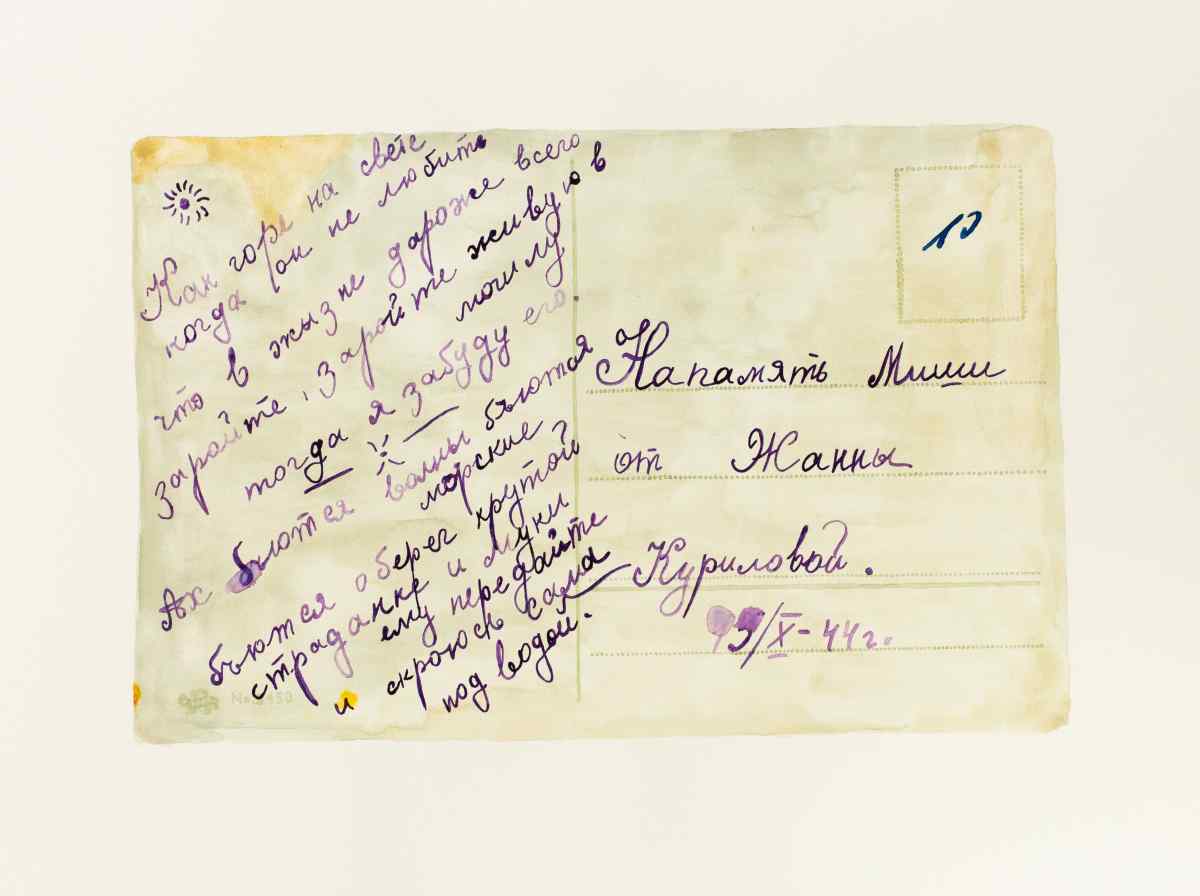 Как горе на свете
когда он не любить
что в жызне дароже всего
заройте, заройте живую в
могилу
тогда я забуду его
Ах бьются валны бьются о
морские
бьются о берег крутой
страданье и муки
ему передайте
и скроюсь сама
под водой.
10
Напамять Миши
от Жанны
Куриловой.
/X-44г.